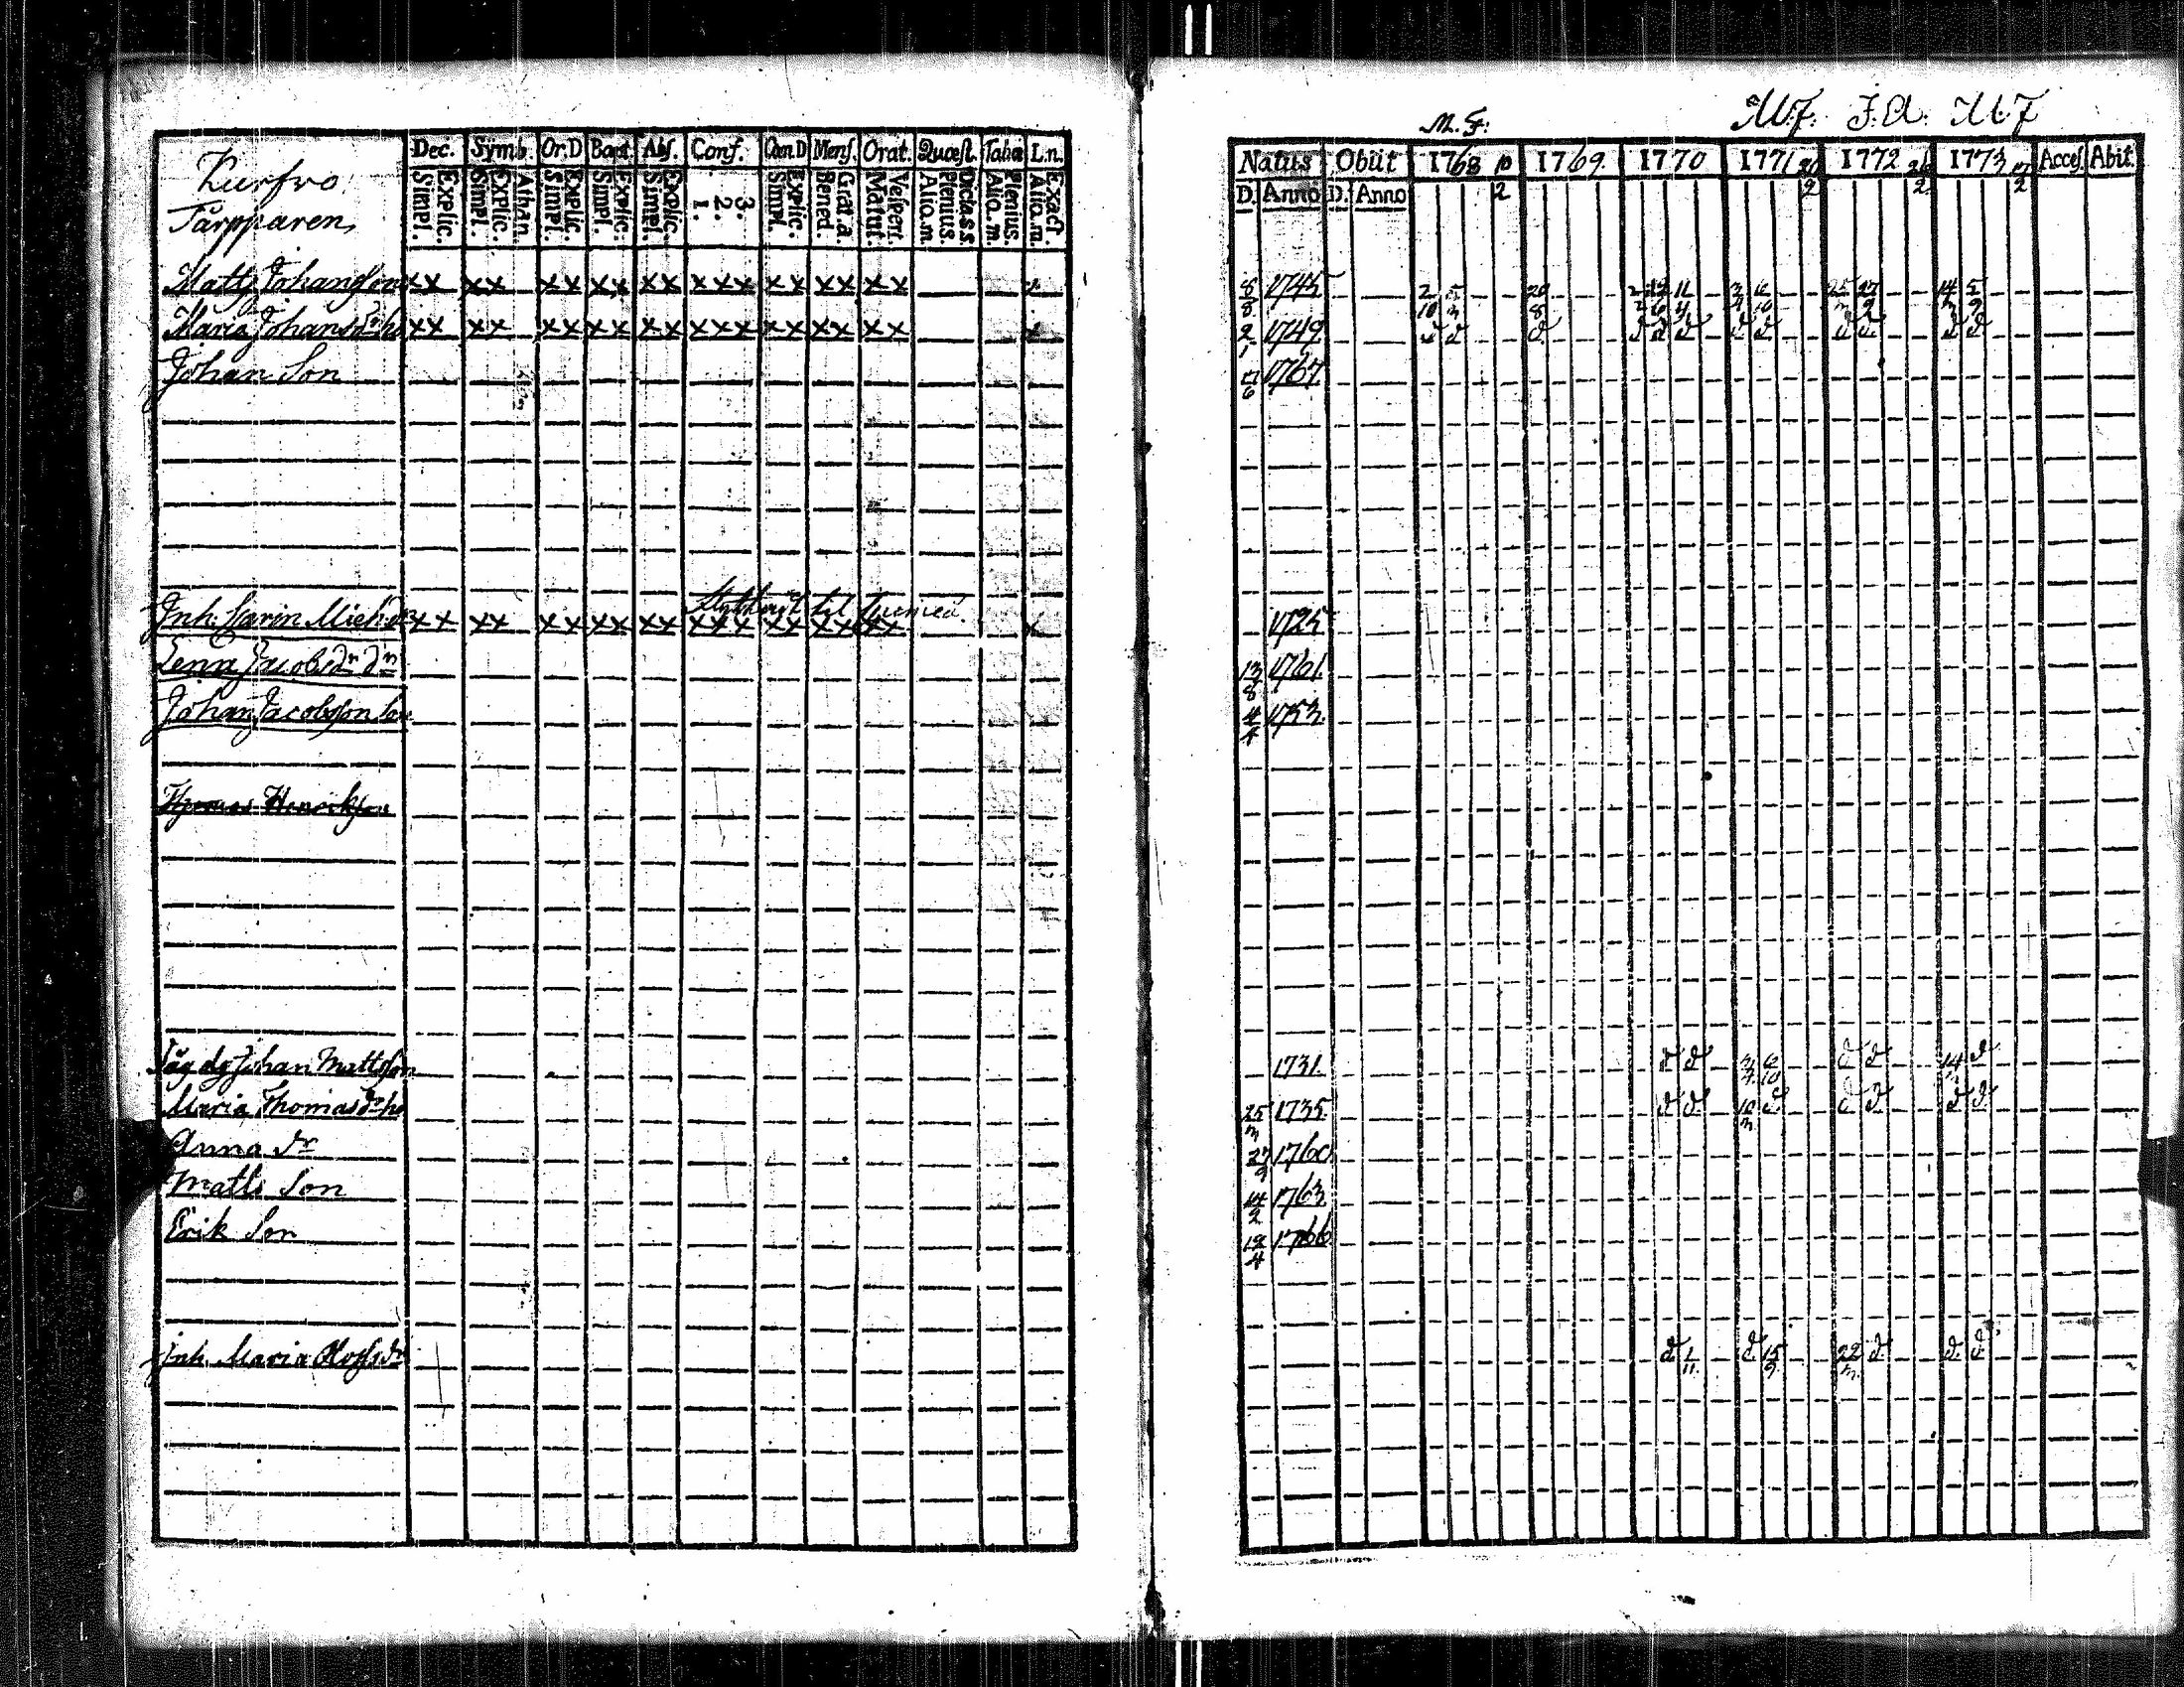 M. F. M.F. F.A. M.F
Kurfvo Dec. Symb. Or.D Bapt. Abs. Conf. Cœn.D Mens. Orat. Quæst. Tabæ L.n.
Tårpparen Simpl. Explic. Simpl. Explic. Athan. Simpl. Explic. Simpl. Explic. Simpl. Explic. 1. 2. 3. Simpl. Explic. Bened. Grat.a. Matut. Vespert. Alio.m. Plenius. Dictass. Alio.m. Plenius. Alio.m. Exact.
Natus Obiit 1768 10/2 1769. 1770 1771 20/2 1772 26/2 1773 17/2 Acces. Abit.
D. Anno D. Anno
Matts Johansson xx xx xx xx xx xxx xx xx xx x 1745
Maria Johansdr hu xx xx xx xx xx xxx xx xx xx x 2/1 1749 d d d d d d d d d d d d
Johan Son 17/6 1767
til
Inh. Carin Michdr xx xx xx xx xx xxx xx xx xx x 1725
Lena Jacobsdr dr 13/8 1761
Johan Jacobsson son 4/4 1753
Thomas Henriksson
Johan Mattsson 1731. d d 3/4 6/10 d d 14/3 d
Maria Thomasdr hu 25/3 1735 d d 10/3 d d d d d
Anna dr 27/9 1760
Matts Son 14/2 1763
Erik Son 18/4 1766
Inh. Maria Olofsdr d 1/11 d 15/9 22/3 d d d